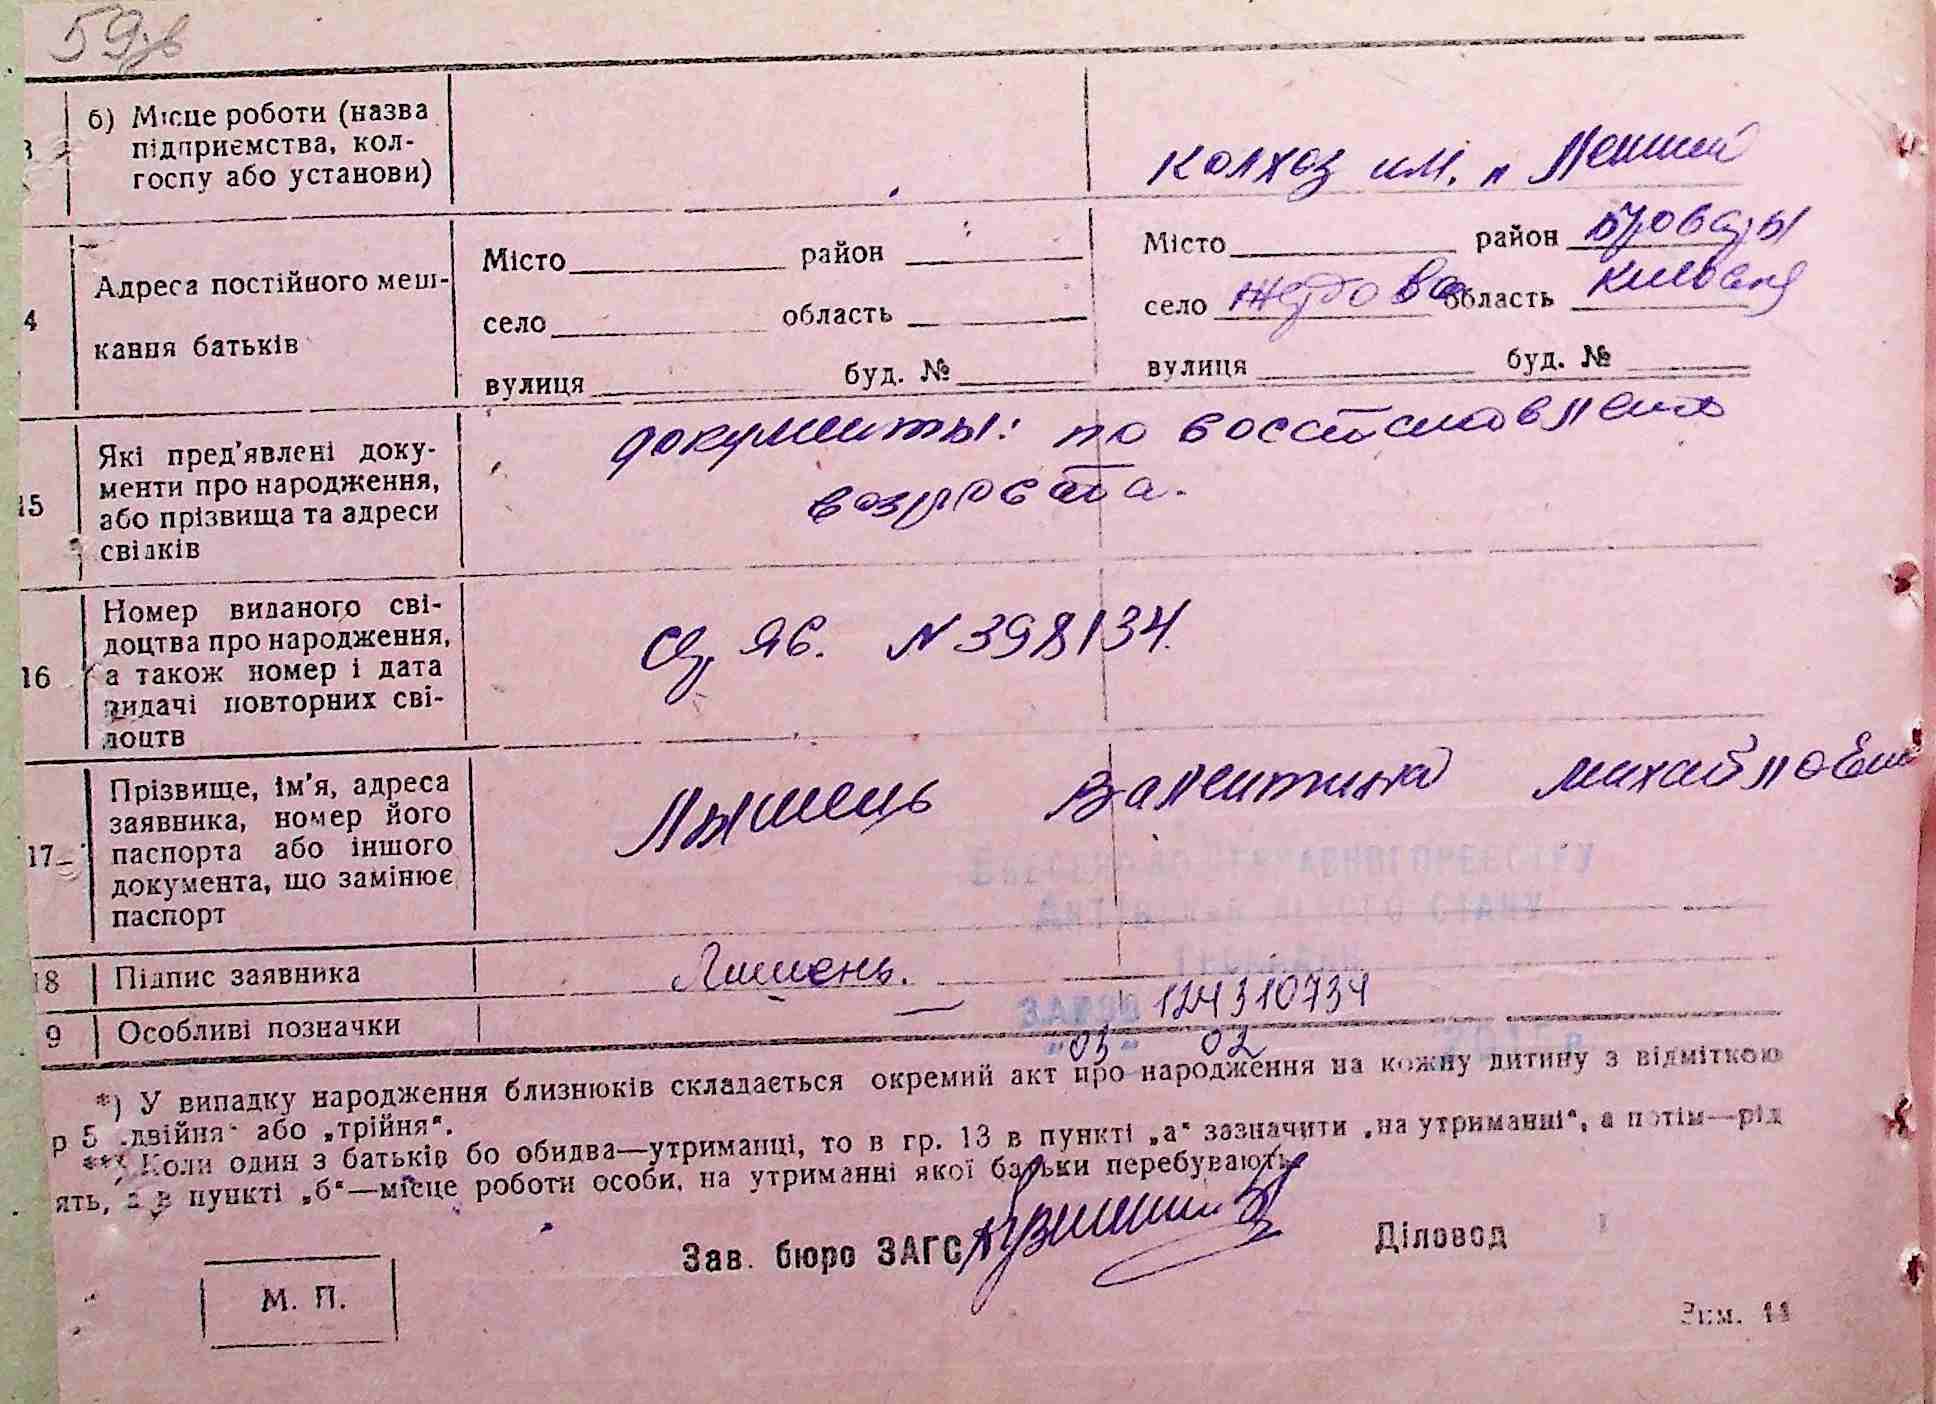 59зв
б) Місце роботи (назва
підприємства, кол-
госпу або установи)
колхоз им. „Ленина
4
Адреса постійного меш-
кання батьків
Місто район
село область
вулиця буд. №
Місто район Бровары
село Жердова область Киевская
вулиця буд. №
15
Які пред'явлені доку-
менти про народження,
або прізвища та адреси
свідків
документы: по восстановлению
возраста.
16
Номер виданого сві-
доцтва про народження,
а також номер і дата
видачі повторних сві-
доцтв
ЯБ. N 398134.
17
Прізвище, ім'я, адреса
заявника, номер його
паспорта або іншого
документа, що замінює
паспорт
Валентина Михайловна
18
Підпис заявника
9
Особливі позначки
—
124310734
„03“ 02
*) У випадку народження близнюків складається окремий акт про народження на кожну дитину з відміткою
р 5 „двійня“ або „трійня“.
**) Коли один з батьків бо обидва—утриманці, то в гр. 13 в пункті „а“ зазначити „на утриманні“, а потім—рід
ять, а в пункті „б“—місце роботи особи, на утриманні якої батьки перебувають.
Зав. бюро ЗАГС
Діловод
М. П.